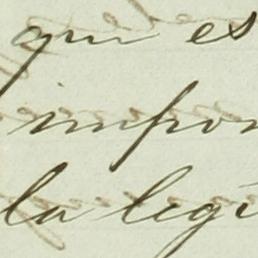 qui es
impor
la legi